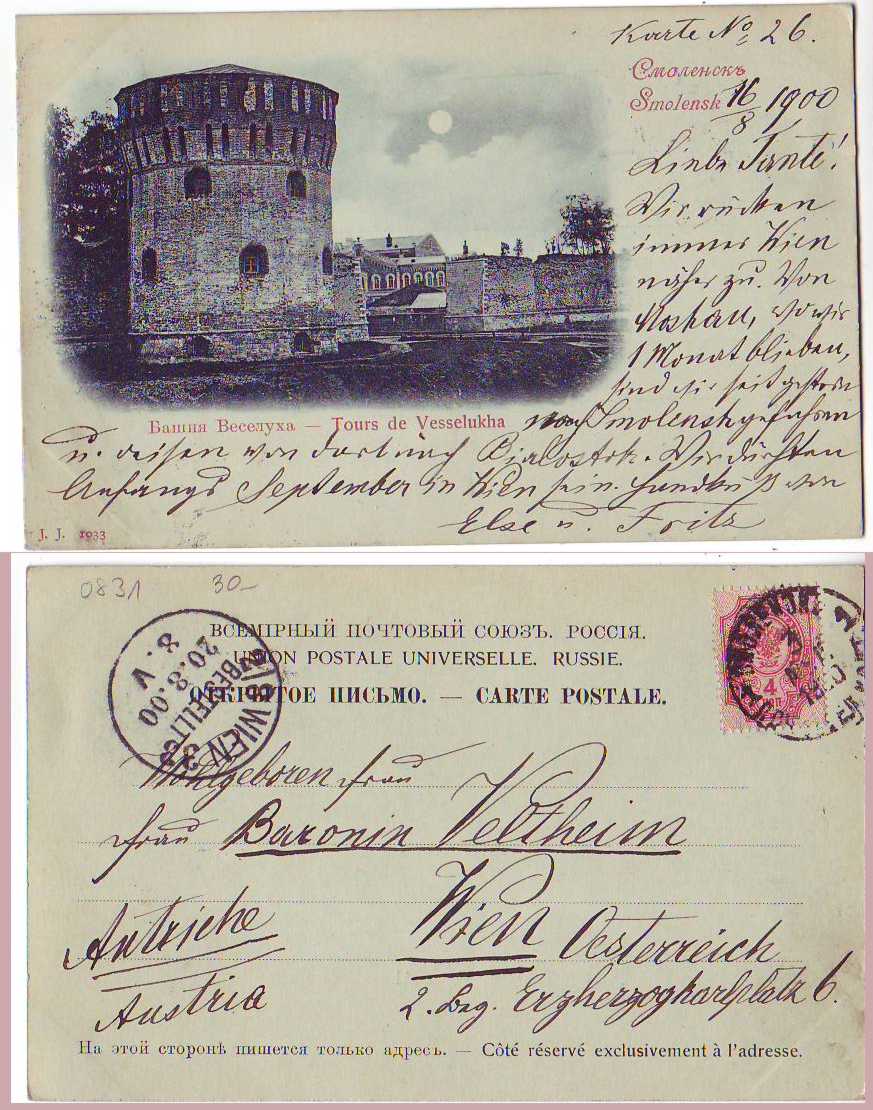 Karte No 26.
Смоленскъ
Smolensk 16/8 1900
Liebe Tante!
Wir rücken
immer Wien
näher zu. Von
Moskau, wo wir
1 Monat blieben,
sind wir seit gestern
Башня Веселуха — Tours de Vesselukha
nach Smolensk gefahren
u. reisen von dort nach Bialostok. Wir dürften
Anfangs September in Wien sein. Handkuß von
Else u. Fritz
J. J. 1933
0831 30-
ВСЕМІРНЫЙ ПОЧТОВЫЙ СОЮЗЪ. РОССІЯ.
UNION POSTALE UNIVERSELLE. RUSSIE.
ОТКРЫТОЕ ПИСЬМО. — CARTE POSTALE.
WIEN
BESTELLT
20.8.00
8.V
4
Wohlgeboren Frau
Frau Baronin Veltheim
Autriche
Wien Oesterreich
Austria
2. Bez. Erzherzogkarlplatz 6.
На этой сторонѣ пишется только адресъ. — Côté réservé exclusivement à l'adresse.